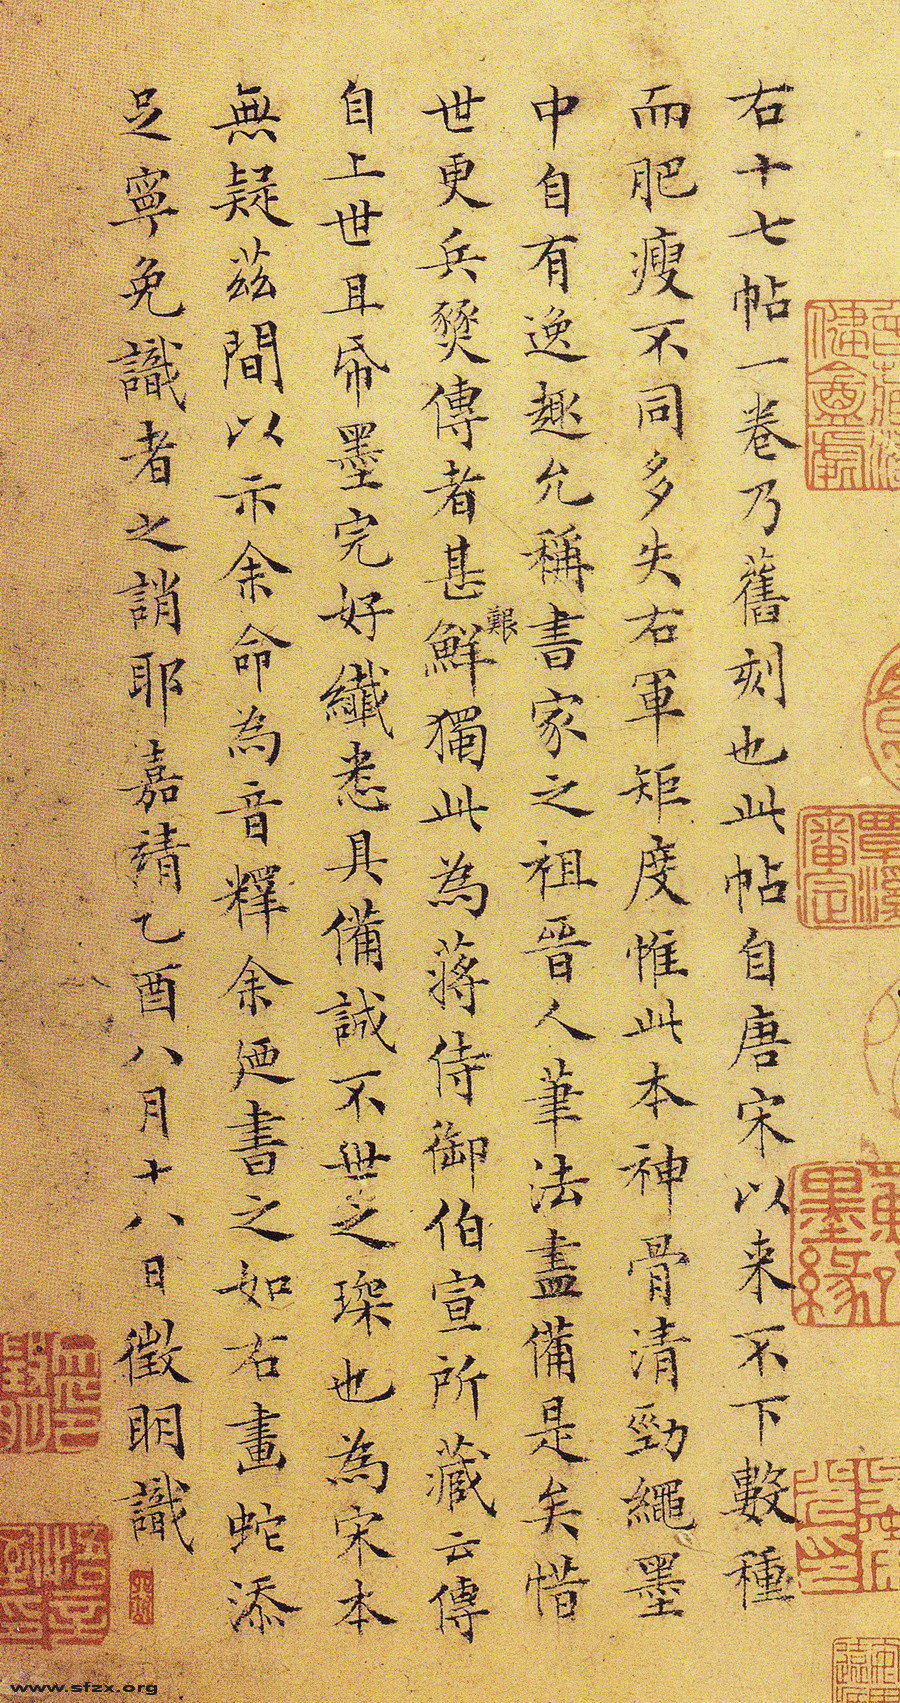 右十七帖一卷乃舊刻也此帖自唐宋以来不下數種
而肥瘦不同多失右軍矩度惟此本神骨清勁繩墨
中自有逸趣允稱書家之祖晉人筆法盡備是矣惜
世更兵燹傳者甚鮮獨此為蔣侍御伯宣所藏云傳
艱
自上世且帋墨完好纖悉具備誠不世之琛也為宋本
無疑茲間以示余命為音釋余廼書之如右畫蛇添
足寧免識者之誚耶嘉靖乙酉八月十八日徵明識
墨緣
審定
www.sfzx.org